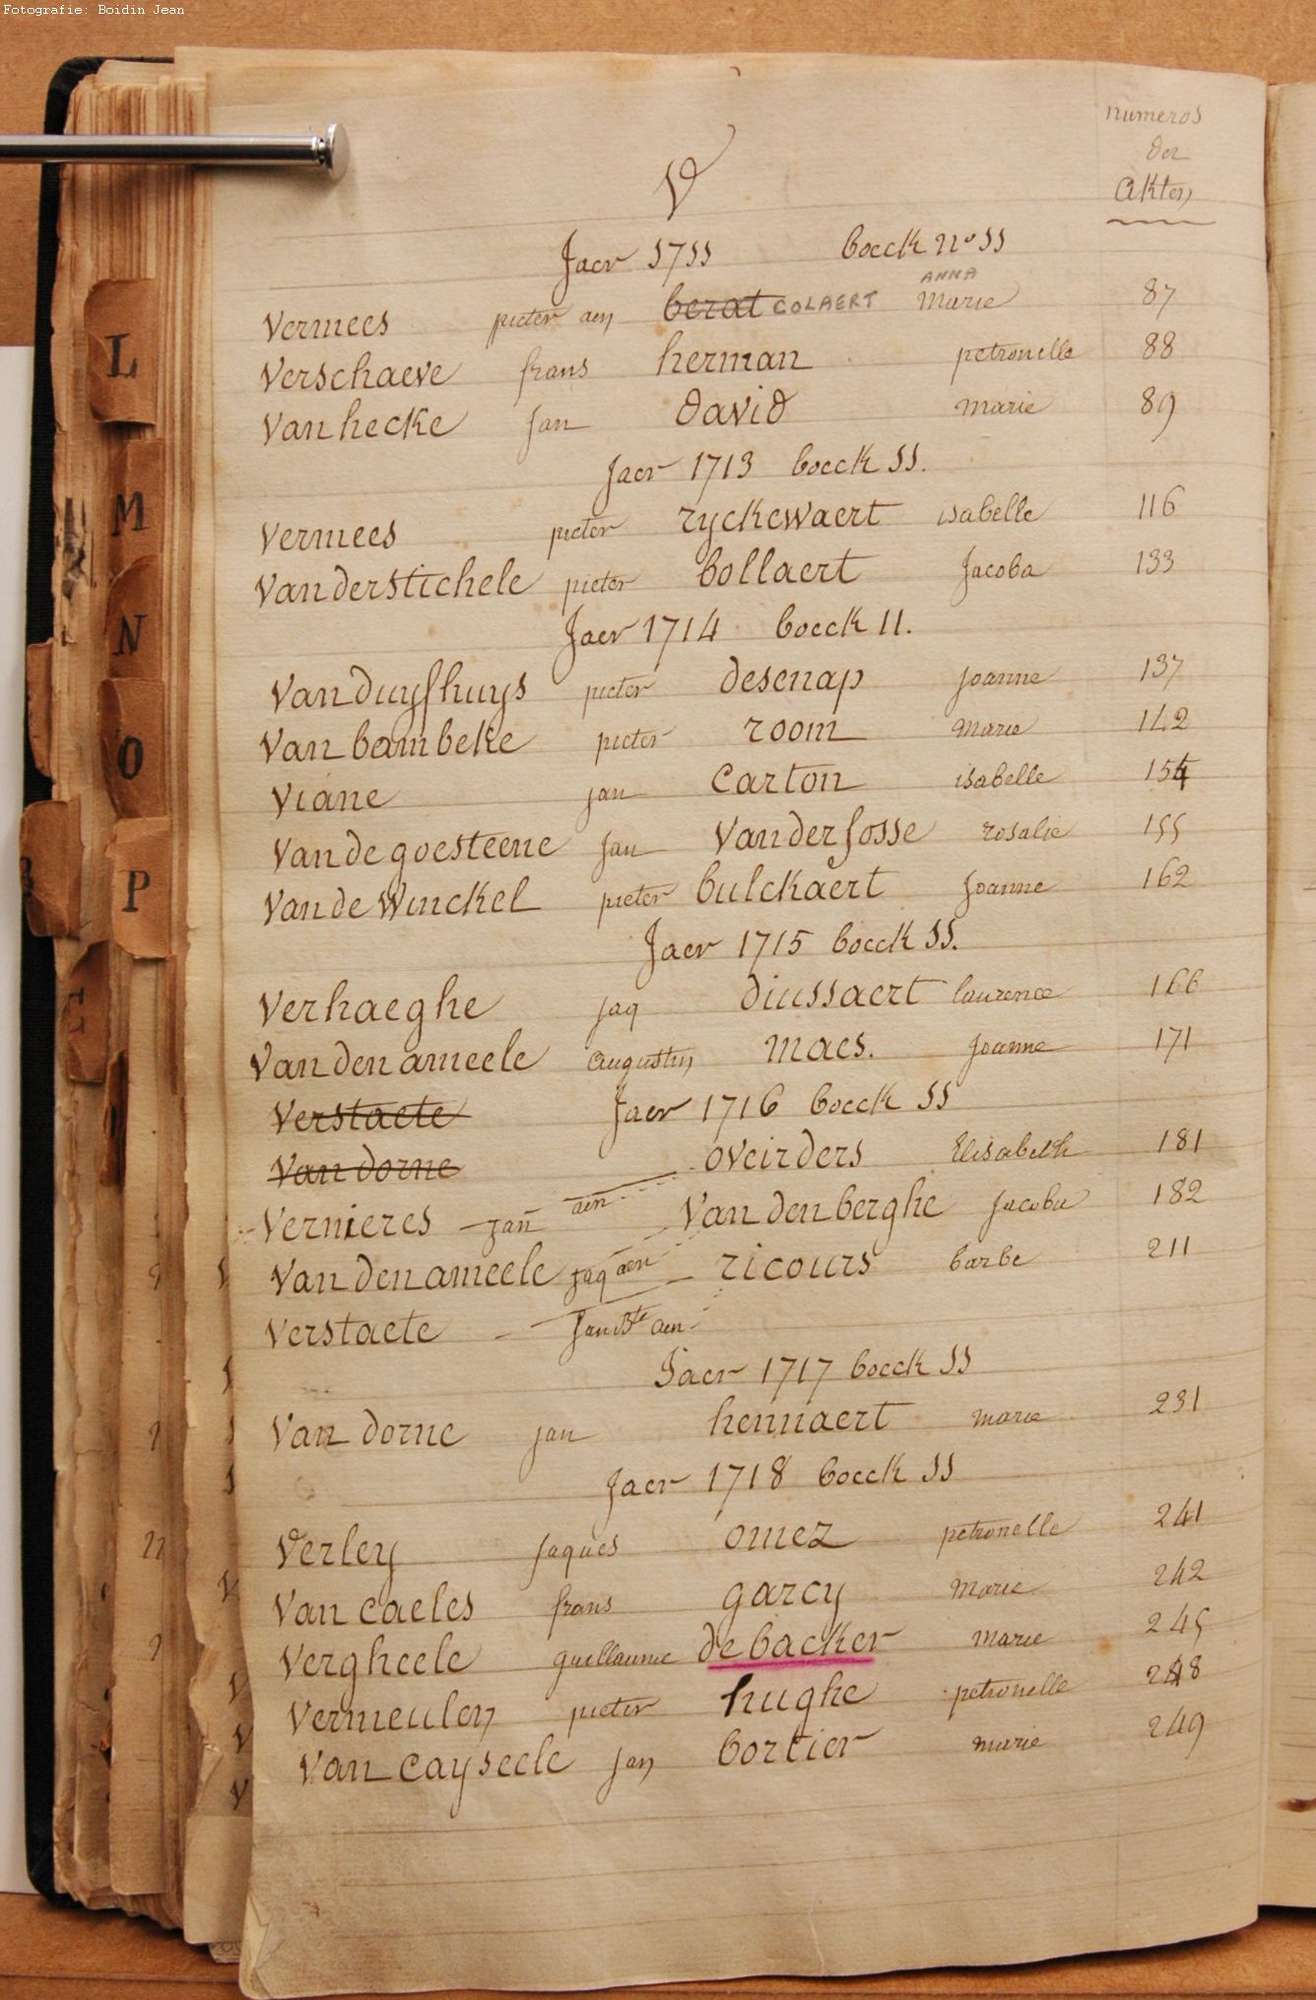 Fotografie: Boidin Jean
numeros
der
Akten
V
Jaer 1711 boeck n° 11
ANNA
Vermees pieter aen berat COLAERT Marie 87
Verschaeve frans herman petronelle 88
Van hecke Jan David marie 89
Jaer 1713 boeck 11.
Vermees pieter ryckewaert isabelle 116
Vanderstichele pieter bollaert Jacoba 133
Jaer 1714 boeck 11.
Van duyfhuys pieter desenap Joanne 137
Van bambeke pieter room Marie 142
Viane jan Carton isabelle 154
Van de goesteene Jan Vanderfosse rosalie 155
Van de Winckel pieter bulckaert Joanne 162
Jaer 1715 boeck 11.
Verhaeghe jaq diussaert laurence 166
Van den ameele augustin maes. Joanne 171
Verstaete Jaer 1716 boeck 11
Van dorne oveirders Elisabeth 181
Vernieres jan aen Van den berghe Jacoba 182
Van den ameele jaq aen ricours barbe 211
Verstaete Jan Bte aen
Jaer 1717 boeck 11
Van dorne jan hennaert marie 231
Jaer 1718 boeck 11
Verley Jaques omez petronelle 241
Van caeles frans garcy Marie 242
Vergheele guillaume de backer marie 245
Vermeulen pieter hughe petronelle 248
Van cayseele Jan bortier marie 249
L
M
N
O
P